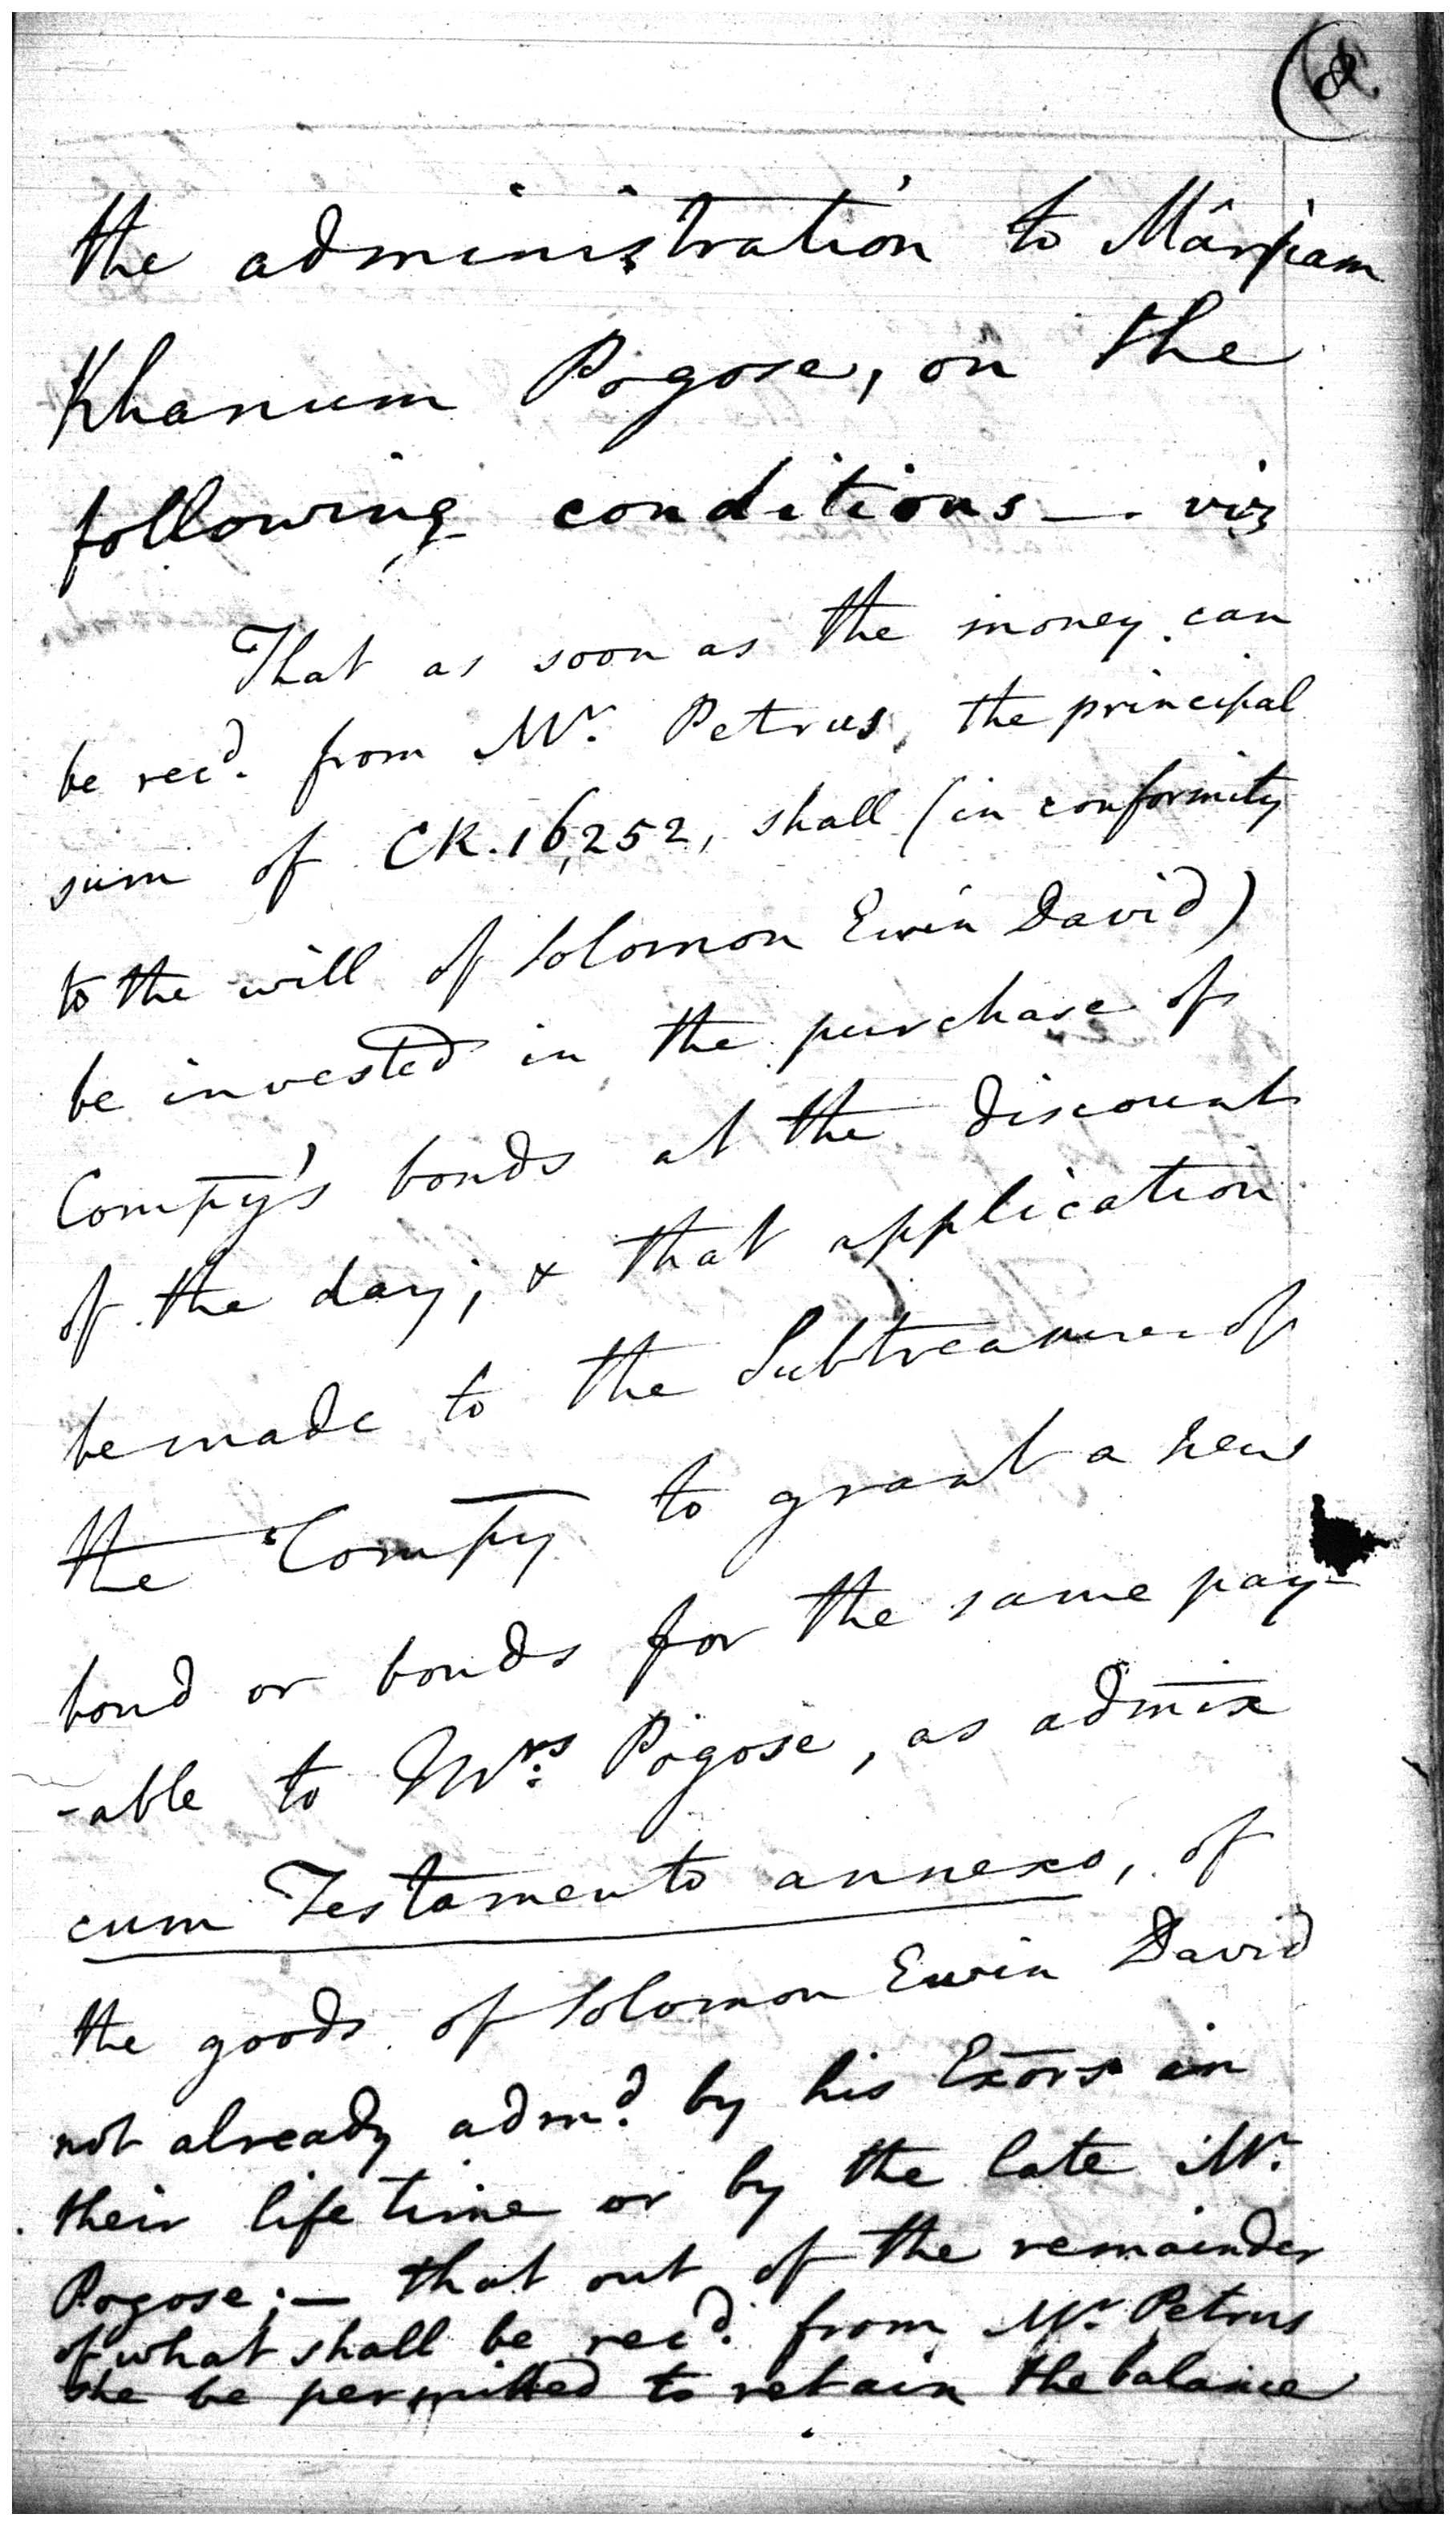 the administration to Mâriam
Khanum Pogose, on the
following conditions —. viz
That as soon as the money can
be recd. from Mr. Petrus, the principal
sum of CR. 16,252, shall (in conformity
to the will of Solomon Ewin David)
be invested in the purchase of
Compy's bonds at the discount
of the day; & that application
be made to the Subtreasurer of
the Compy to grant a new
bond or bonds for the same pay-
-able to Mrs. Pogose, as admix
cum Testamento annexo, of
the goods of Solomon Ewin David
not already admd. by his Exors in
their life time or by the late Mr.
Pogose; — that out of the remainder
of what shall be recd. from Mr. Petrus
she be permitted to retain the balance